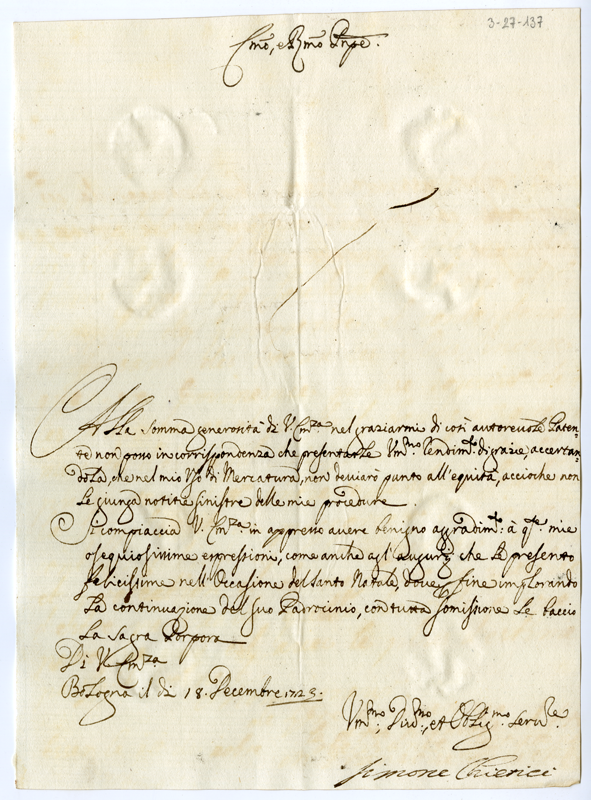 3-27-137
Emo, e Rmo Pnpe.
Alla somma generosità di V. Emza nel graziarmi di così autoreuole Paten=
te non posso in corrispondenza che presentarLe Vmmo Rendimto di grazie, accertan=
doLa, che nel mio Vfo di Mercatura, non deuiarò punto all'equità, accioche non
Le giunga notitie sinistre delle mie procedure.
Si compiaccia V. Emza in appresso auere benigno aggradimto à qte mie
ossequiosissime espressioni, come anche agl'augurij che Le presento
felicissime nell'Occasione del Santo Natale, doue per fine implorando
La continuazione del suo Padrocinio, con tutta somissione Le baccio
La Sagra Porpora
Di V. Emza
Bologna il di 18. Decembre 1723.
Vmmo, Diuomo, et Obligmo Seruire.
Simone Chierici